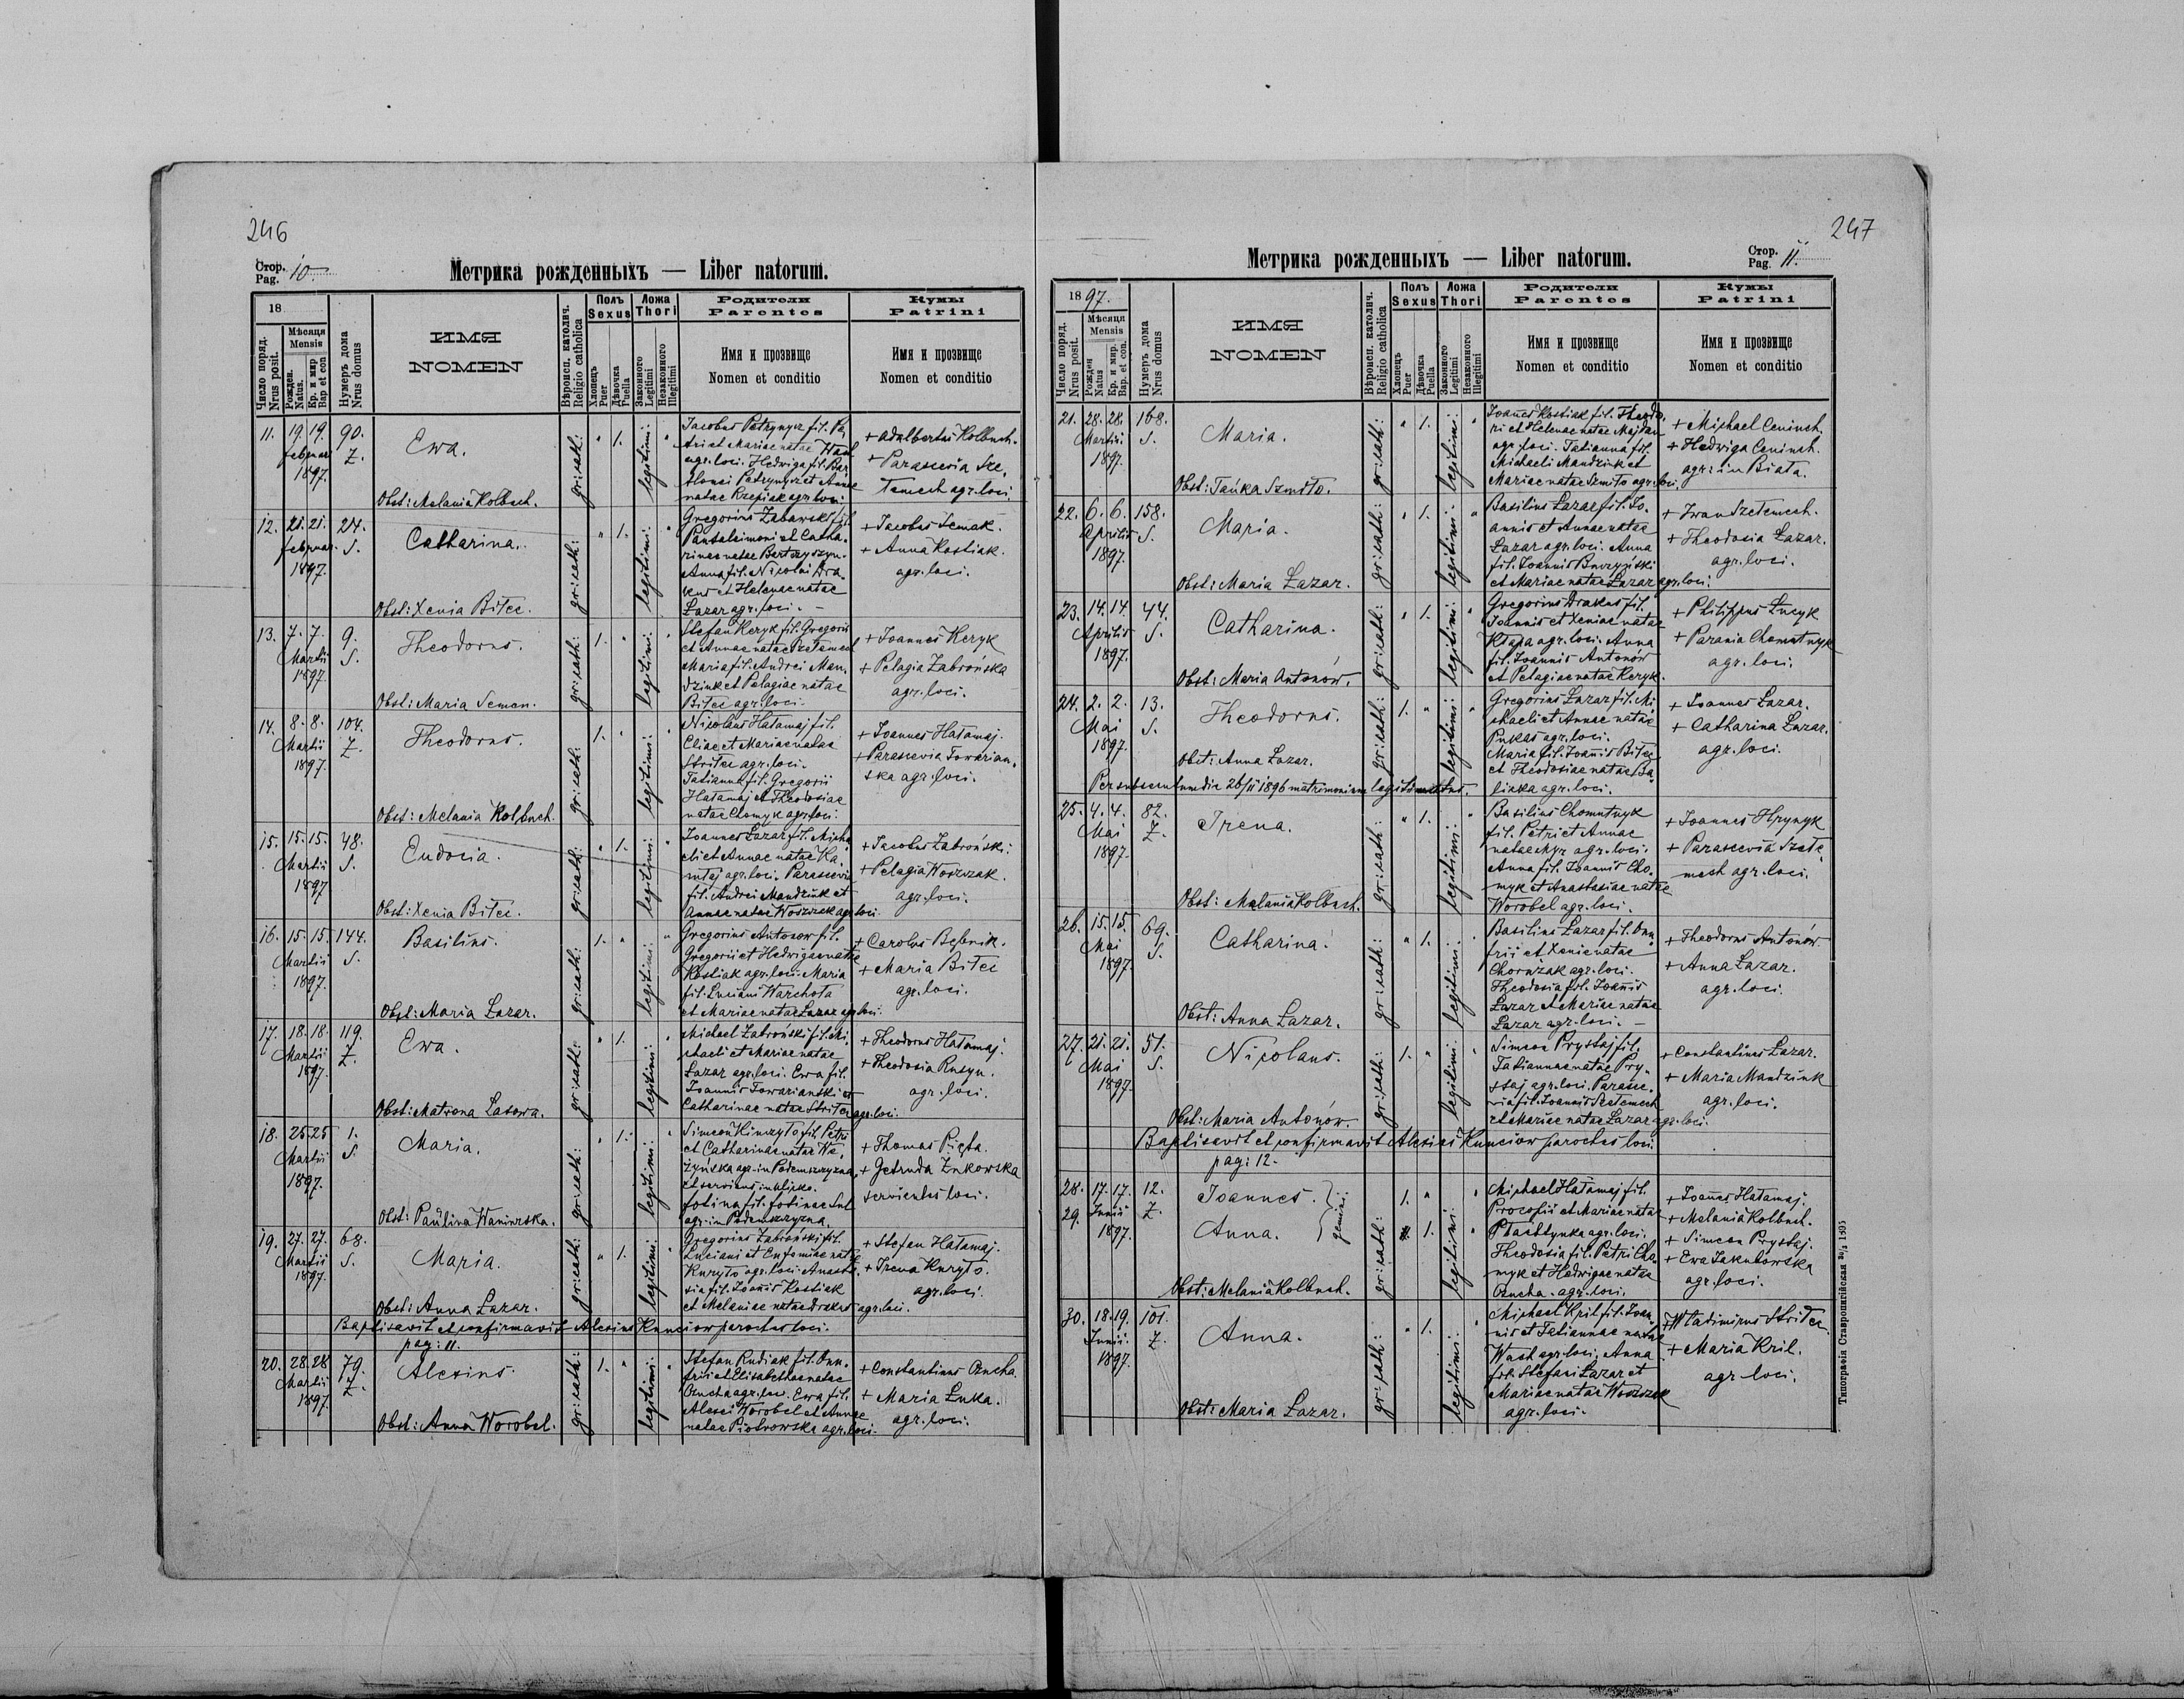 246
Стор. Pag. 10.
Метрика рожденныхъ — Liber natorum.
18
Число поряд. Nrus posit.
Мѣсяця Mensis
Рожден. Natus.
Кр. и мир Bap et con
Нумеръ дома Nrus domus
ИМЯ
NOMEN
Вѣроисп. католич. Religio catholica
Полъ Sexus
Хлопець Puer
Дѣвочка Puella
Ложа Thori
Законного Legitimi
Незаконного Illegitimi
Родители
Parentes
Имя и прозвище
Nomen et conditio
Кумы
Patrini
Имя и прозвище
Nomen et conditio
11. 19. 19. 90.
Februar Z.
1897.
Ewa.
Obst: Melania Kolbuch.
gr: cath: " 1. legitimi: "
Jacobus Patrynycz fil. Pe,
tri et Mariae natae Wach
agr. loci. Hedwiga fil. Bar
natae Rzepiak agr. loci.
+ Adalbertus Kolbuch.
+ Parascevia Sze,
temech agr. loci.
12. 21. 21. 24.
Februar. S.
1897.
Catharina.
Obst: Xenia Bilec.
gr: cath: " 1. legitimi: "
Gregorius Zabawski fil.
Pantaleimoni et Catha.
rinae natae Bartczyszyn.
Anna fil. Nicolai Dra.
kus et Helenae natae
Łazar agr. loci. –
+ Jacobus Semak.
+ Anna Kostiak.
agr. loci.
13. 7. 7. 9.
Martii S.
1897.
Theodorus.
Obst: Maria Semen.
gr: cath: 1. " legitimi: "
Stefan Keryk fil. Gregorii
et Annae natae Szetemech
Maria fil. Andrei Man.
dziuk et Pelagiae natae
Bilec agr. loci.
+ Joannes Keryk
+ Pelagia Zabrońska
agr. loci.
14. 8. 8. 104.
Martii Z.
1897.
Theodorus.
Obst: Melania Kolbuch.
gr: cath: 1. " legitimi: "
Nicolaus Hałamaj fil.
Eliae et Mariae natae
Stritec agr. loci.
Tatianna fil. Gregorii
Hałamaj et Theodosiae
natae Chomyk agr. loci.
+ Joannes Hałamaj.
+ Parascevia Towarian.
ska agr. loci.
15. 15. 15. 48.
Martii S.
1897
Eudocia.
Obst: Xenia Bilec.
gr: cath: " 1. legitimi: "
Joannes Łazar fil. Micha
elis et Annae natae Ha.
agr. loci. Parascevia
fil. Andrei Mandziuk et
Annae natae Woszczak agr. loci.
+ Jacobus Zabroński.
+ Pelagia Woszczak.
agr. loci.
16. 15. 15. 144.
Martii S.
1897.
Basilius.
Obst: Maria Lazar.
gr: cath: 1. " legitimi: "
Gregorius Antonow fil.
Gregorii et Hedwigae natae
Kostiak agr. loci. Maria
fil. Luciani Warchoła
et Mariae natae Lazar agr. loci.
+ Carolus
+ Maria Bilec
agr. loci.
17. 18. 18. 119.
Martii Z.
1897.
Ewa.
Obst: Matrona Lasowa.
gr: cath: " 1. legitimi: "
Michael Zabroński fil. Mi.
chaeli et Mariae natae
Lazar agr. loci. Ewa fil.
Joannis Towarianski et
Catharinae natae Stritec agr. loci.
+ Theodorus Hałamaj.
+ Theodosia Rusyn.
agr. loci.
18. 25 25 1.
Martii S.
1897.
Maria.
Obst: Paulina
gr: cath: " 1. legitimi: "
Simeon fil. Petri
et Catharinae natae
agr. in Podemszczyzna,
et serviens in
fotina fil. fotinae
agr. in Podemszczyzna.
+ Thomas Pięta.
+ Getruda Żukowska
servientes loci.
19. 27. 27. 68.
Martii S.
1897.
Maria.
Obst: Anna Lazar.
gr: cath: " 1. legitimi: "
Gregorius Zabroński fil.
Luciani et Eufemiae natae
Kuryło agr. loci. Anasta.
sia fil. Joannis Kostiak
et Melaniae natae Drakus agr. loci.
+ Stefan Hałamaj.
+ Irena Kuryło.
agr. loci.
Baptisavit et confirmavit Alexius Kunciow parochus loci.
pag: 11.
20. 28 28 79.
Martii Z.
1897.
Alexius.
Obst: Anna Worobel.
gr: cath: 1. " legitimi: "
Stefan Rudiak fil. Onu.
frii et Elisabethae natae
Oncha agr. loci. Ewa fil.
Alexei Worobel et Annae
natae Piotrowska agr. loci.
+ Constantinus Oncha.
+ Maria Łuka.
agr. loci.
247
Стор. Pag. 11.
Метрика рожденныхъ — Liber natorum.
1897.
Число поряд. Nrus posit.
Мѣсяця Mensis
Рожден Natus
Кр. и мир. Bap. et con.
Нумеръ дома Nrus domus
ИМЯ
NOMEN
Вѣроисп. католич. Religio catholica
Полъ Sexus
Хлопець Puer
Дѣвочка Puella
Ложа Thori
Законного Legitimi
Незаконного Illegitimi
Родители
Parentes
Имя и прозвище
Nomen et conditio
Кумы
Patrini
Имя и прозвище
Nomen et conditio
21. 28. 28. 168.
Martii S.
1897.
Maria.
Obst: Tańka Szmiło.
gr: cath: " 1. legitimi: "
Joannes Kostiak fil. Theodo.
ri et Helenae natae Majdan
agr. loci. Tatianna fil.
Michaeli Mandziuk et
Mariae natae Szmiło agr. loci.
+ Michael Ceniuch.
+ Hedwiga Ceniuch.
agr: in Biała.
22. 6. 6. 158.
Aprilis S.
1897.
Maria.
Obst: Maria Łazar.
gr: cath: " 1. legitimi: "
Basilius Łazar fil. Jo.
annis et Annae natae
Łazar agr. loci. Anna
fil. Joannis Buczyński
et Mariae natae Lazar agr. loci.
+ Iwan Szetemech.
+ Theodosia Łazar.
agr. loci.
23. 14. 14 44.
Aprilis S.
1897.
Catharina.
Obst: Maria Antonów.
gr: cath: " 1. legitimi: "
Gregorius Drakus fil.
Joannis et Xeniae natae
Kłapa agr. loci. Anna
fil. Joannis Antonów
et Pelagiae natae Keryk.
+ Philippus Łucyk
+ Parania Chomutnyk
agr. loci.
24. 2. 2. 13.
Mai S.
1897.
Theodorus.
Obst: Anna Łazar.
gr: cath: 1. " legitimi: "
Gregorius Łazar fil. Mi
chaeli et Annae natae
Pukas agr. loci.
Maria fil. Joannis Bilec
et Theodosiae natae Ba.
linka agr. loci.
+ Joannes Łazar.
+ Catharina Łazar.
agr. loci.
Per subsecutum die 26/II 1896 matrimonium legitimatus.
25. 4. 4. 82.
Mai Z.
1897.
Irena.
Obst: Melania Kolbuch.
gr: cath: " 1. legitimi: "
Basilius Chomutnyk
fil. Petri et Annae
natae agr. loci.
Anna fil. Joannis Cho,
myk et Anastasiae natae
Worobel agr. loci.
+ Joannes Hrynyk
+ Parascevia Szete,
mech agr. loci.
26. 15. 15. 69.
Mai S.
1897.
Catharina.
Obst: Anna Lazar.
gr: cath: " 1. legitimi: "
Basilius Łazar fil. Onu
frii et Xeniae natae
Chorużak agr. loci.
Theodosia fil. Joannis
Lazar et Mariae natae
Lazar agr. loci. –
+ Theodorus Antonów
+ Anna Łazar.
agr. loci.
27. 21. 21. 51.
Mai S.
1897.
Nicolaus.
Obst: Maria Antonów.
gr: cath: 1. " legitimi: "
Simeon Prystaj fil.
Tatiannae natae Pry,
staj agr. loci. Parasce.
via fil. Joannis Szetemech
et Mariae natae Lazar agr. loci.
+ Constantinus Lazar.
+ Maria Mandziuk
agr. loci.
Baptisavit et confirmavit Alexius Kunciow parochus loci.
pag: 12.
28. 17. 17. 12.
29. Junii Z.
1897.
Joannes.
Anna.
gemini
Obst: Melania Kolbuch.
gr: cath: 1. " " 1. legitimi: "
Michael Hałamaj fil.
Procopii et Mariae natae
agr. loci.
Theodosia fil. Petri Cho.
myk et Hedwigae natae
Oncha. agr. loci.
+ Joannes Hałamaj.
+ Melania Kolbuch.
+ Simeon Prystaj.
+ Ewa Jakubowska
agr. loci.
30. 18. 19. 101.
Junii Z.
1897.
Anna.
Obst: Maria Lazar.
gr: cath: " 1. legitimi: "
Michael Kril fil. Joan
nis et Tatiannae natae
Wach agr. loci, Anna
fil. Stefani Lazar et
Mariae natae Woszczak
agr. loci.
+ Wladimirus Stritec.
+ Maria Kril.
agr. loci.
Типографія Ставропигійская 1895